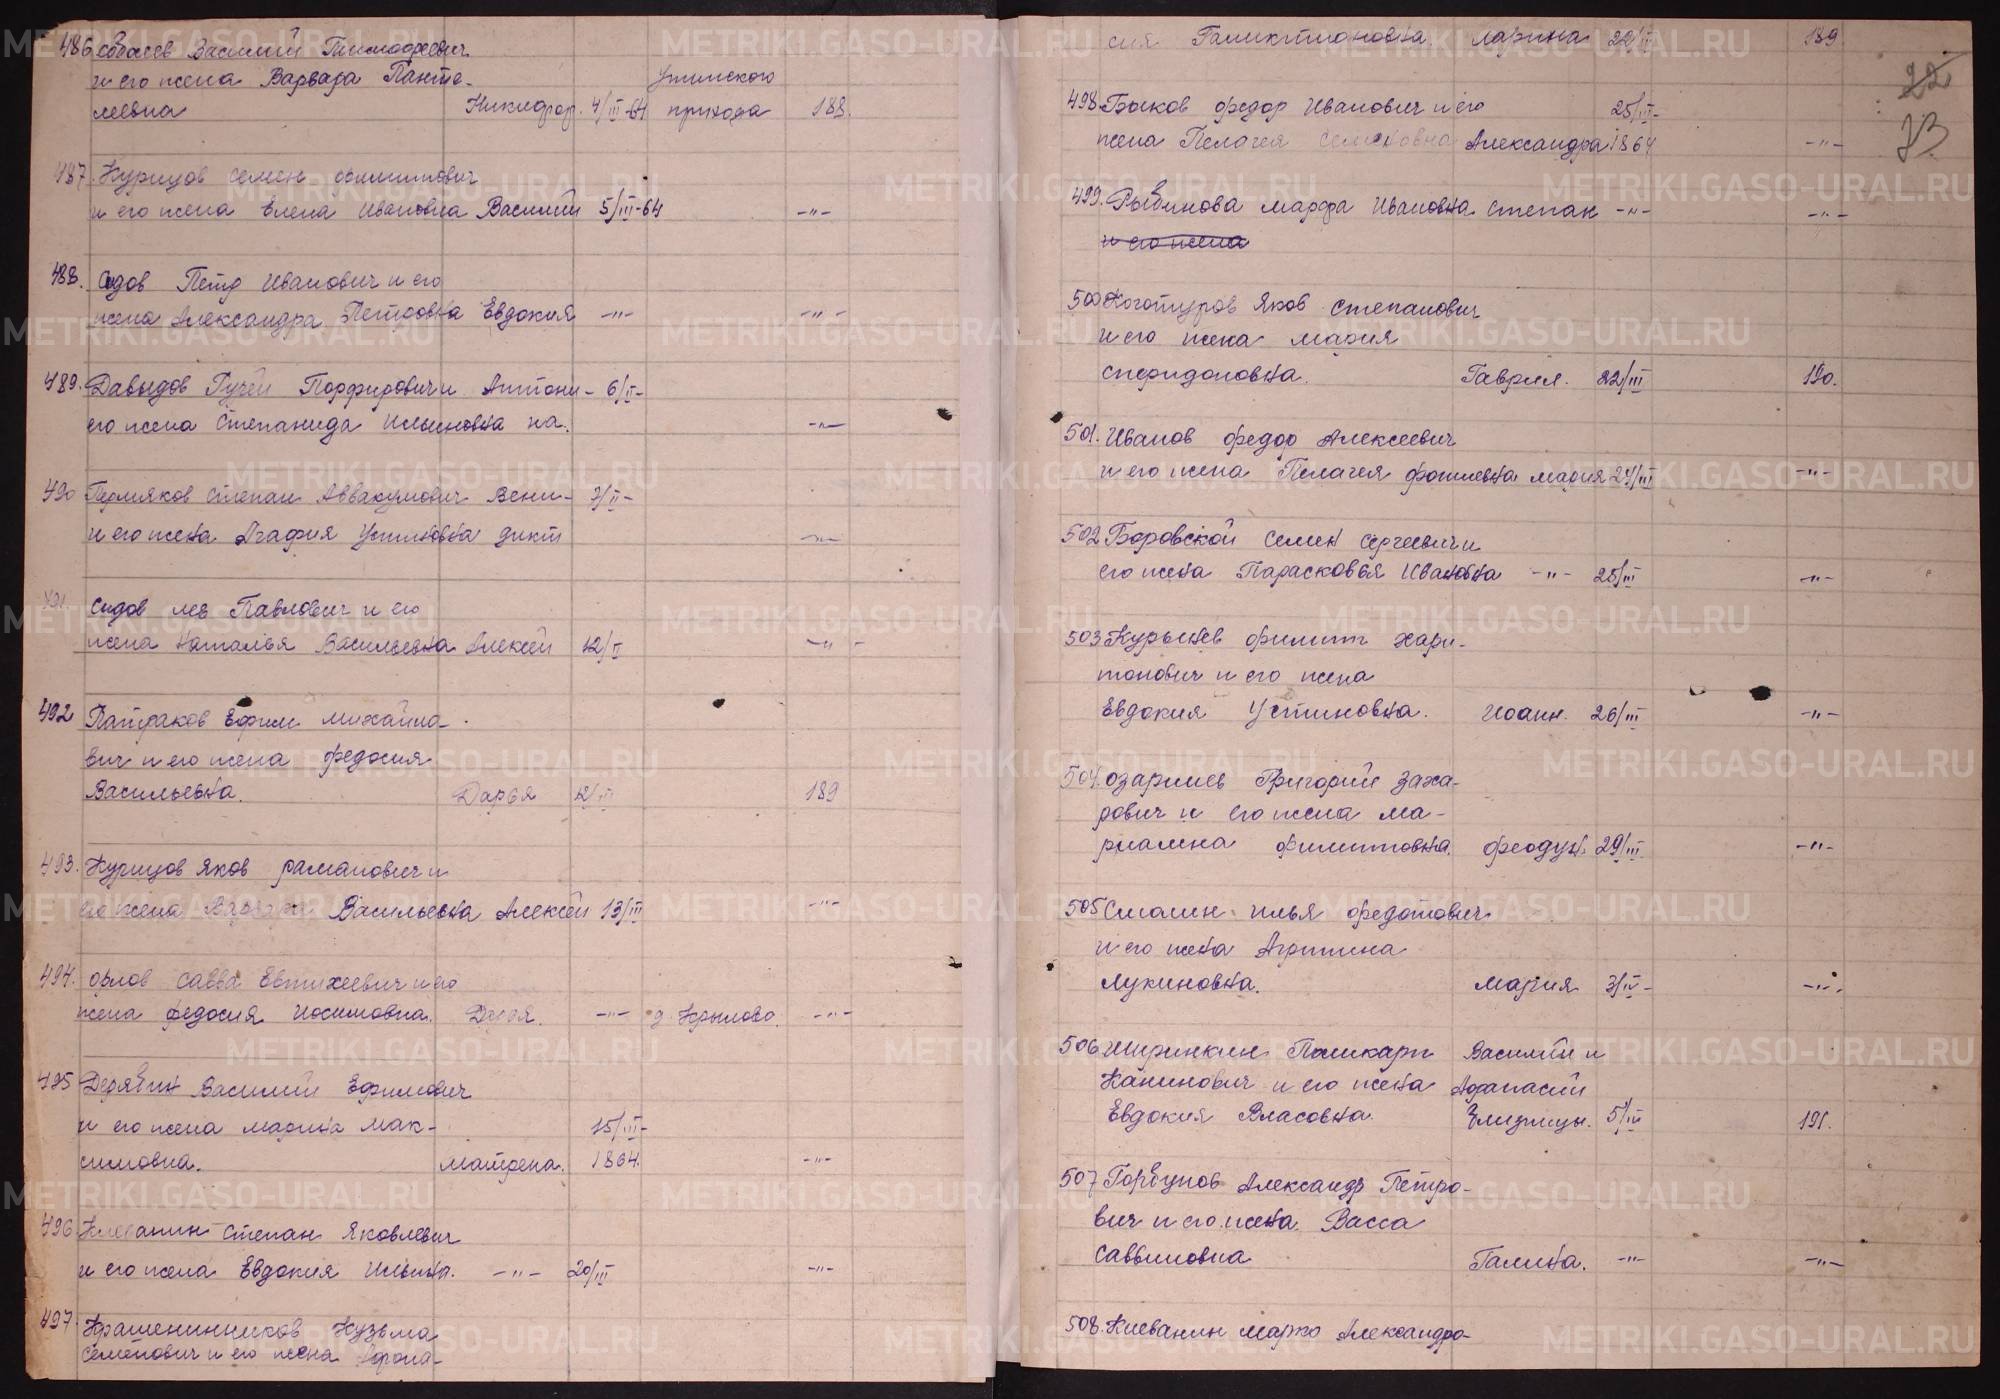 486 Собасев Василий Тимофеевич
и его жена Варвара Панте- Утинского
леевна Никифор. 4/III-64 прихода 188.
487. Курицов Семен Филиппович
и его жена Елена Ивановна Василий 5/III-64 -"-
488. Седов Петр Иванович и его
жена Александра Петровна Евдокия -"- -"-
489. Давыдов Гурей Порфирович и Антони- 6/II-
его жена Степанида Ильиновна на. -"-
490 Пермяков Степан Аввакумович Вени- 7/II-
и его жена Агафия Устиновна дикт -"-
491 Седов Лев Павлович и его
жена Наталья Васильевна Алексей 12/II -"-
492 Патраков Ефим Михайла-
вич и его жена Федосия
Васильевна. Дарья 12/III 189
493. Курицов Яков Раманович и
его жена Варвара Васильевна Алексей 13/III -"-
494. Орлов Савва Евтихеевич и его
жена Федосия Иосимовна. Дарья. -"- д. Крылово. -"-
495 Дерябин Василий Ефимович
и его жена Марина Мак- 15/III-
симовна. Матрена. 1864. -"-
496 Клеванин Степан Яковлевич
и его жена Евдокия Ильина. -"- 20/III -"-
497. Крашенинников Кузьма
Семенович и его жена Афона-
сия Галиктионовна. Ларина 22/II 189
22
73
498 Быков Федор Иванович и его 25/III-
жена Пелагея Семеновна Александра 1864 -"-
499. Рыбинова Марфа Ивановна Степан -"- -"-
и его жена
500 Коготуров Яков Степанович
и его жена Мария
Спиридоновна. Гаврил. 22/III 190.
501. Иванов Федор Алексеевич
и его жена Пелагея Фотиевна Мария 24/III -"-
502 Боровской Семен Сергеевич и
его жена Парасковья Ивановна -"- 25/III -"-
503 Курынев Филипп Хари-
тонович и его жена
Евдокия Устиновна. Иоанн. 26/III -"-
504. Озарниев Григорий Заха-
рович и его жена Ма-
риамна Филипповна. Феодул. 29/III -"-
505 Смолин Илья Федотович
и его жена Агриппина
Лукиновна. Мария 3/IV- -"-
506 Ширинкин Поликарп Василий и
Канинович и его жена Афанасий
Евдокия Власовна. близнецы. 5/IV 191.
507 Горбунов Александр Петро-
вич и его жена Васса
Саввиновна Галина. -"- -"-
508. Клеванин Марко Александро-